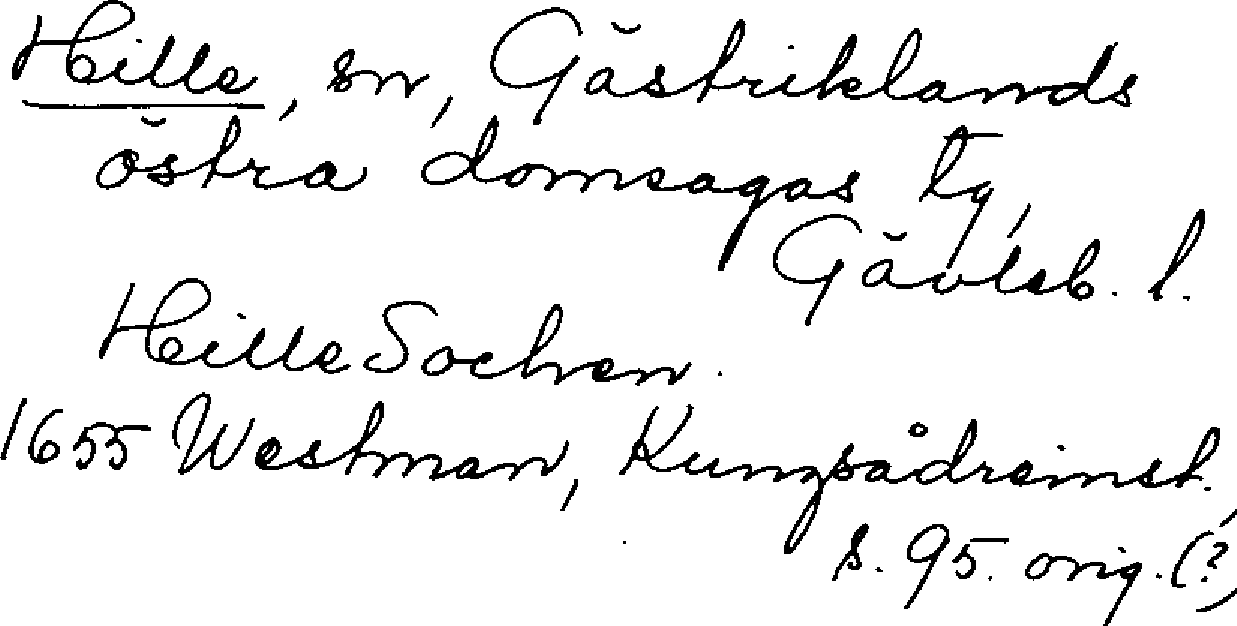 Hille, sn, Gästriklands
östra domsagas tg,
Gävleb. l.
Hille Sochen.
1655 Westman, Kungsådreinst.,
s. 95. orig. (?)